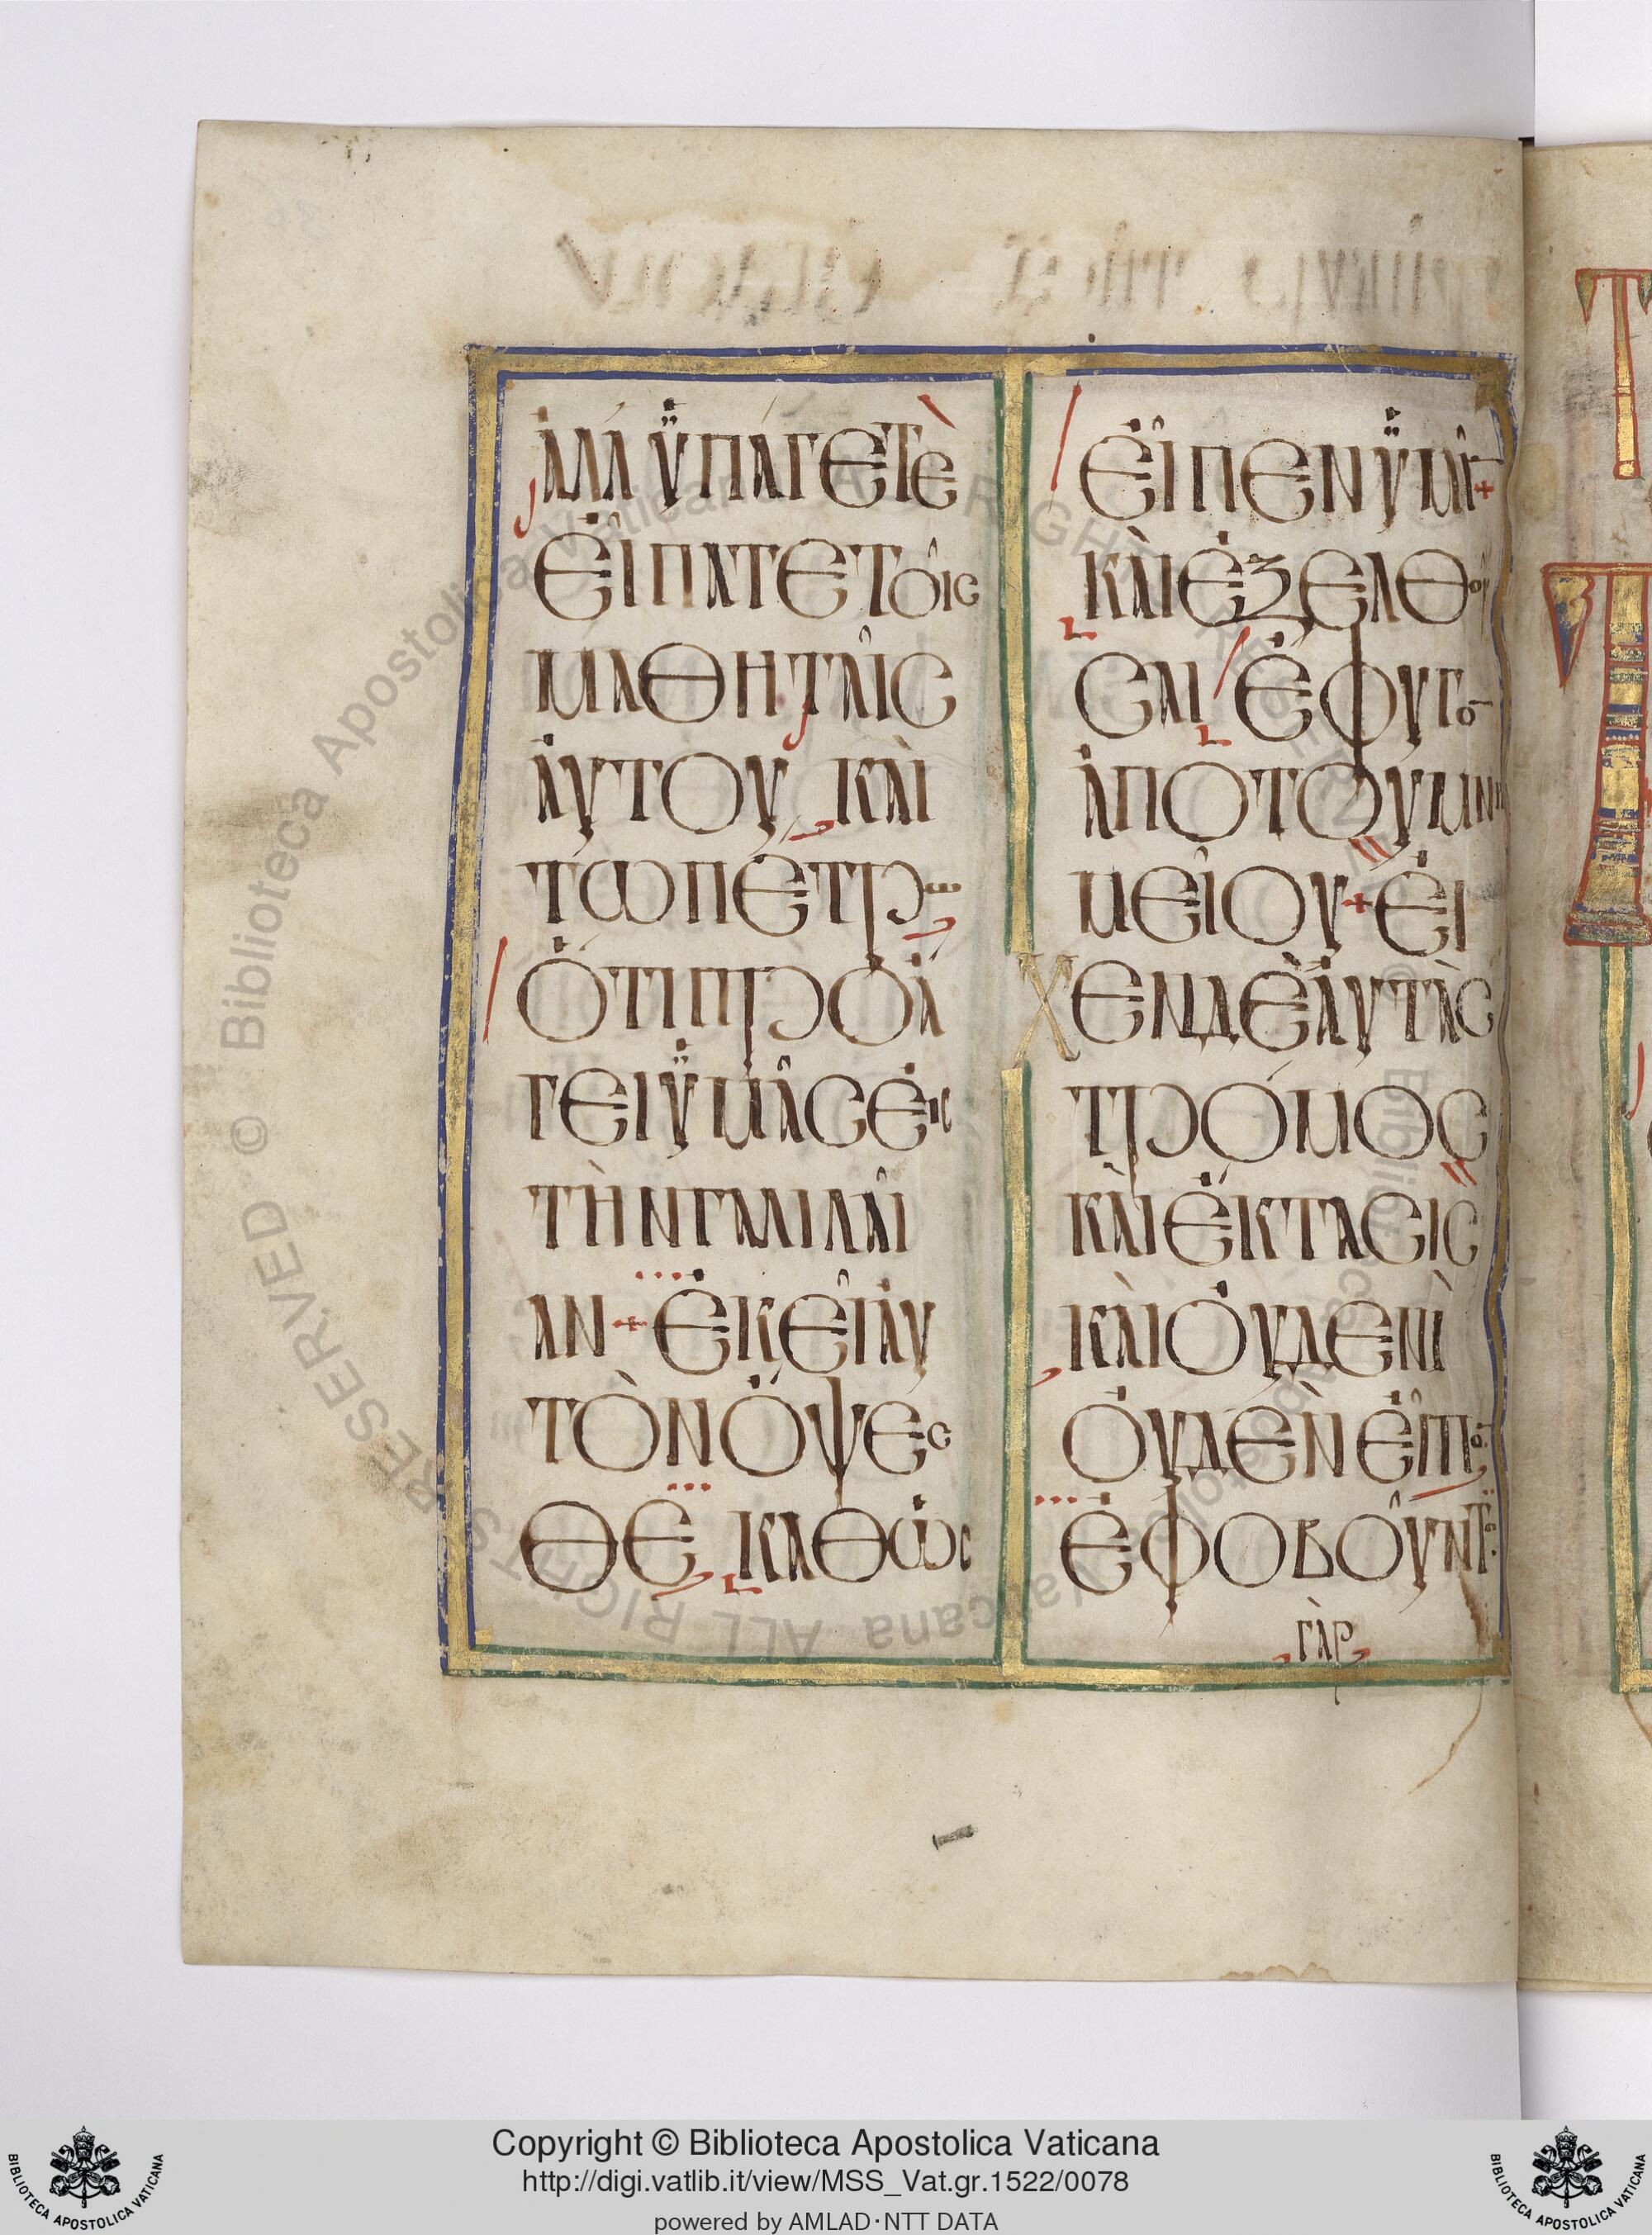 ἀλλ' ὑπάγετὲ
εἴπατε τοῖς
μαθηταῖς
αὐτοῦ, καὶ
τῶ πέτρω
ὅτι προά
γει ὑμᾶς εἰς
τὴν γαλιλαί
αν + ἐκεῖ αὐ
τὸν ὄψες
θε, καθὼς
εἶπεν ὑμῖν +
καὶ ἐξελθοῦ
σαι ἔφυγο
ἀπὸ τοῦ μνη
μείου + εἶ
χεν δὲ αὐτὰς
τρόμος
καὶ ἔκτασις
καὶ οὐδενὶ
οὐδὲν εἶπο
ἐφοβοῦντο
γὰρ
Copyright © Biblioteca Apostolica Vaticana
http://digi.vatlib.it/view/MSS_Vat.gr.1522/0078
powered by AMLAD·NTT DATA
BIBLIOTECA APOSTOLICA VATICANA
BIBLIOTECA APOSTOLICA VATICANA